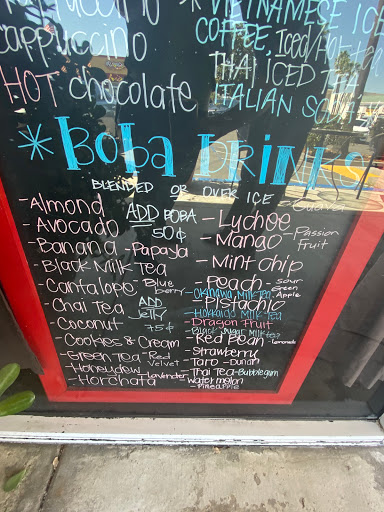 cappuccino
HOT chocolate
* VIETNAMESE ICE
COFFEE, Iced/Hot tea
THAI ICED TEA
ITALIAN SODA
* BOBA DRINKS
BLENDED OR OVER ICE
ADD BOBA
50¢
ADD
JELLY
75¢
- Almond
- Avocado
- Banana - Papaya
- Black Milk Tea
- Cantalope - Blue
berry
- Chai Tea
- Coconut
- Cookies & Cream
- Green Tea - Red
Velvet
- Honeydew - Lavender
- Horchata
- Guava
- Lychee
- Mango - Passion
Fruit
- Mint chip
- Peach - Sour
Green
Apple
- Okinawa Milk Tea
- Pistachio
- Hokkaido Milk Tea
- Dragon Fruit
- Black Sugar Milk tea
- Red Bean - Lemonade
- Strawberry
- Taro - Durian
- Thai Tea - Bubblegum
- Watermelon
- Pineapple